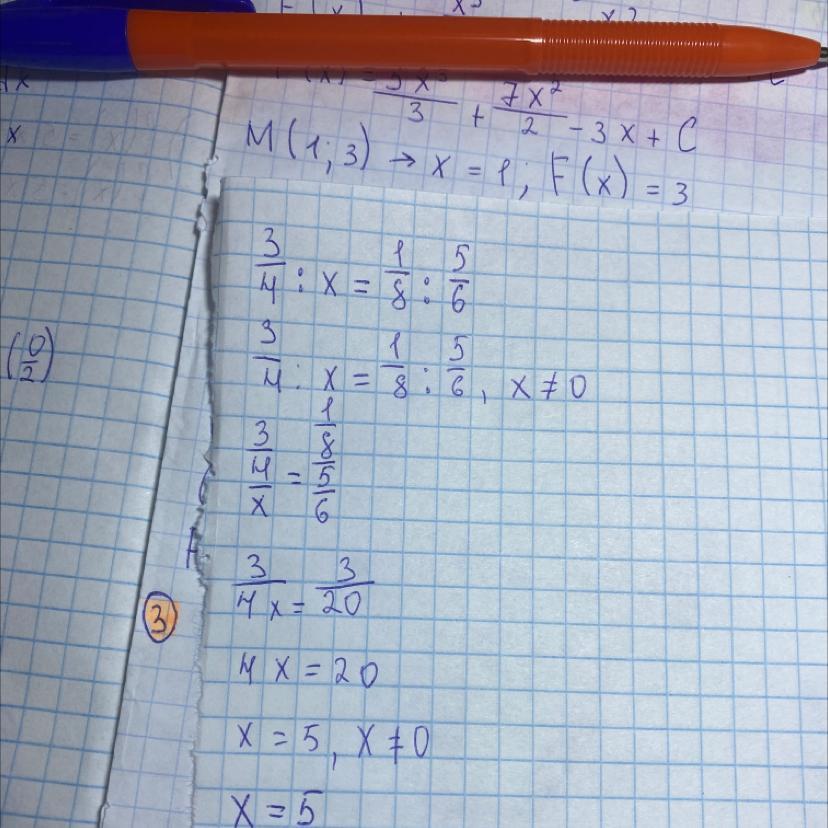 (x) = 5x³/3 + 7x²/2 - 3x + C
M(1;3) → x = 1; F(x) = 3
3/4 : x = 1/8 : 5/6
3/4 : x = 1/8 : 5/6, x ≠ 0
3/4/x = 1/8/5/6
3/4x = 3/20
4x = 20
x = 5, x ≠ 0
x = 5
x
(0/2)
3